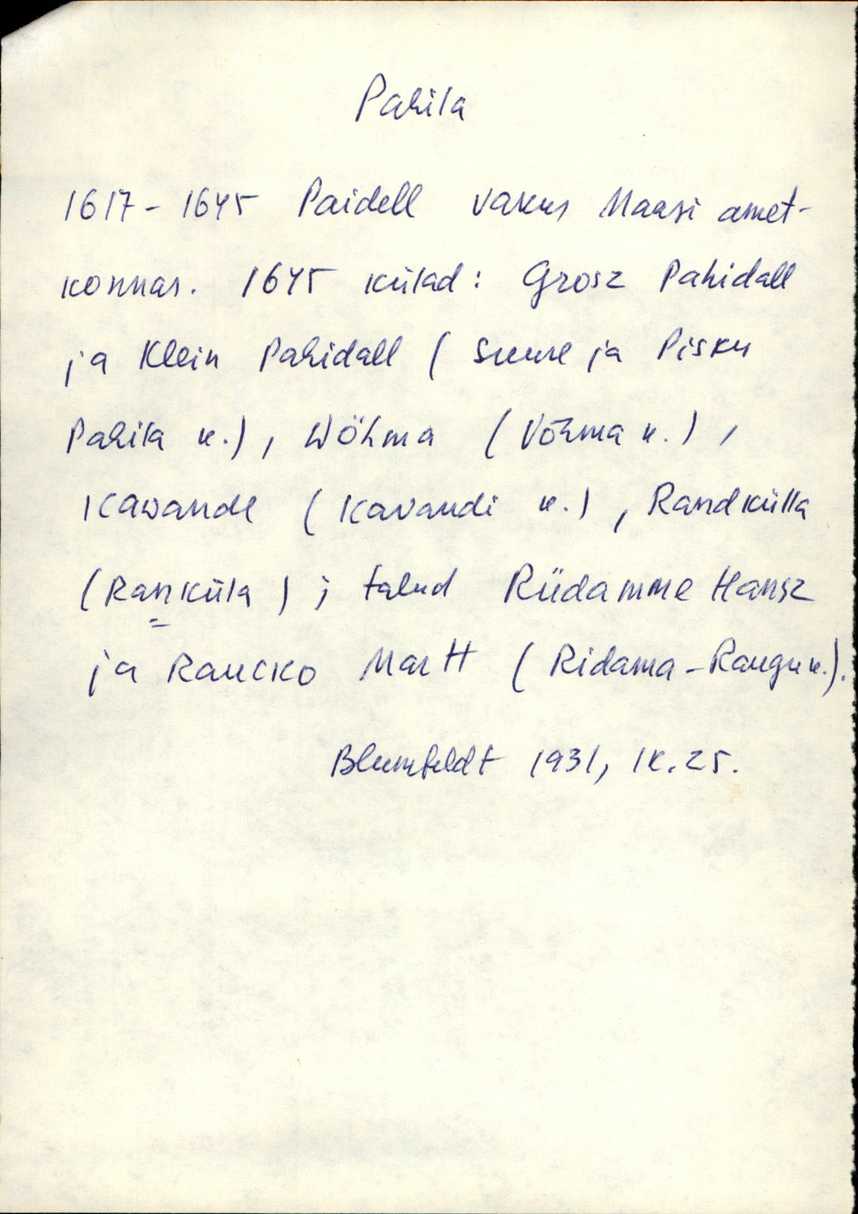 Pahila
1617 - 1645 Paidell vakus Maasi amet-
konnas. 1645 külad: Grosz Pahidall
ja Klein Pahidall ( Suure ja Pisku
Pahila k.), Wöhma ( Võhma k.) ,
Kawande ( Kavandi k.) , Randkülla
(Ranküla ) ; talud Rüdamme Hansz
ja Raucko Martt ( Ridama - Raugu k.).
Blumfeldt 1931, lk. 25.